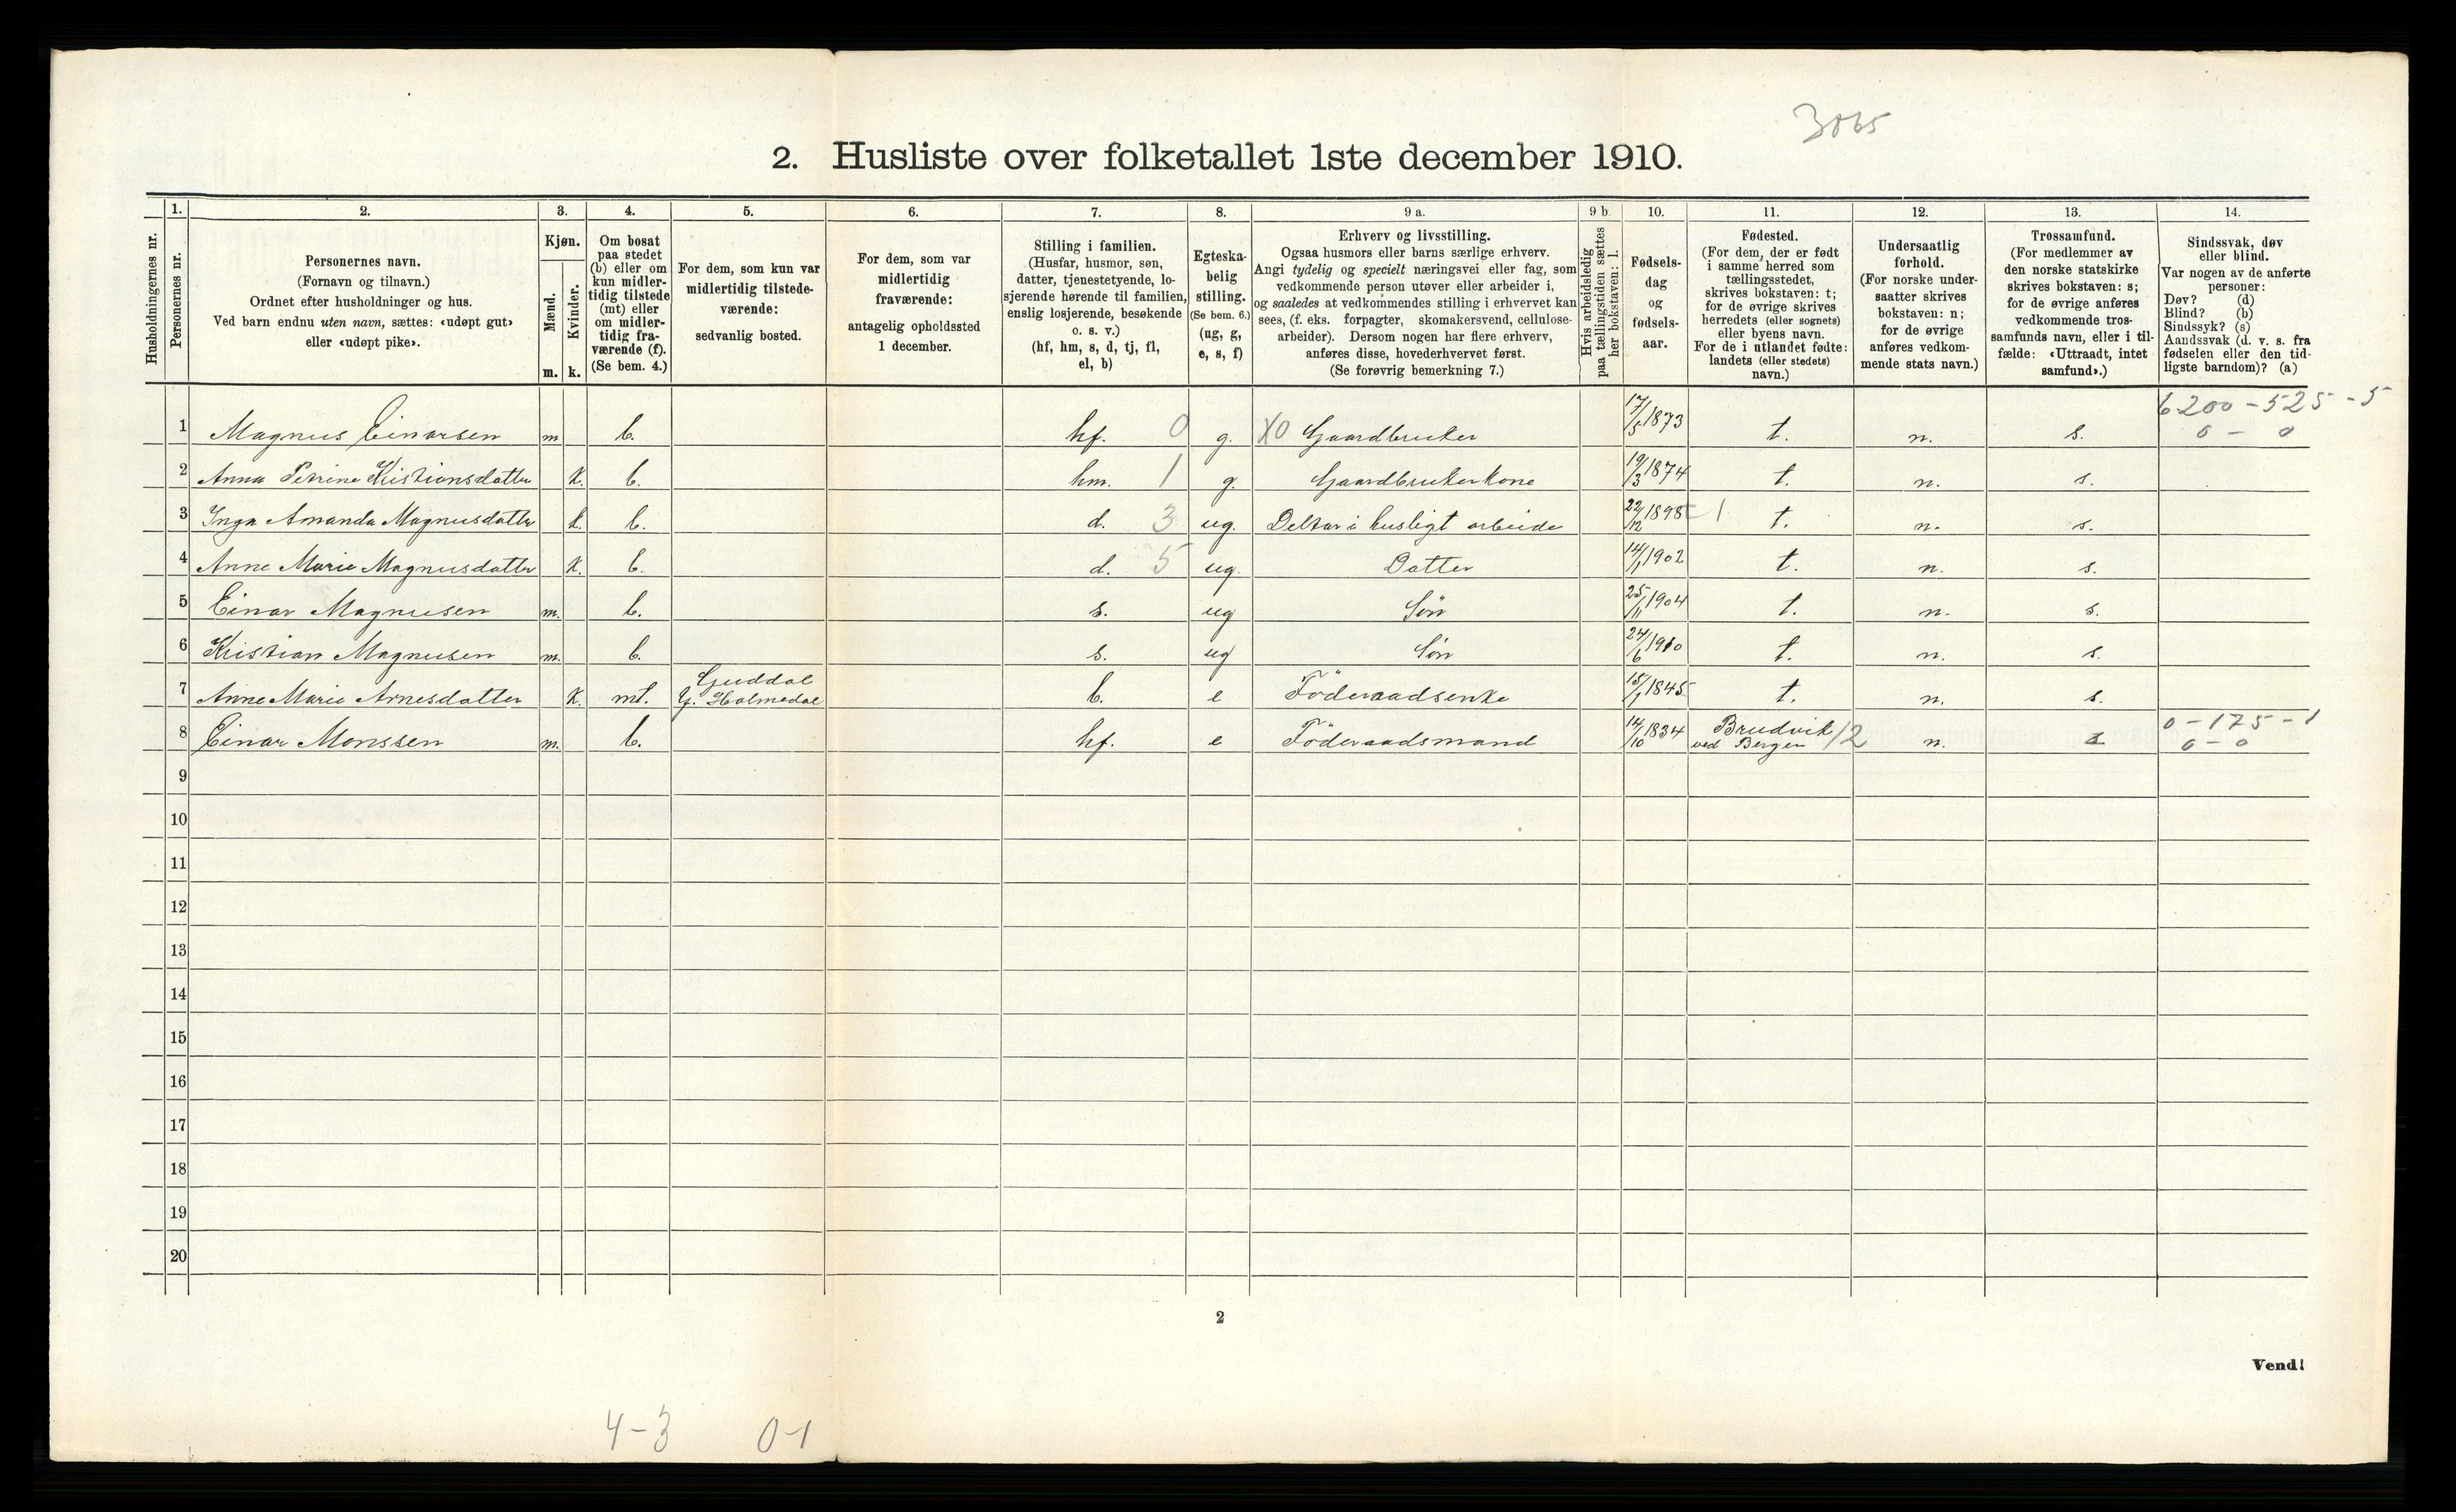 3065
2. Husliste over folketallet 1ste december 1910.
Husholdningernes nr.
1.
Personernes nr.
2.
Personernes navn.
(Fornavn og tilnavn.)
Ordnet efter husholdninger og hus.
Ved barn endnu uten navn, sættes: «udøpt gut»
eller «udøpt pike».
3.
Kjøn.
Mænd.
Kvinder.
m. k.
4.
Om bosat
paa stedet
(b) eller om
kun midler-
tidig tilstede
(mt) eller
om midler-
tidig fra-
værende (f).
(Se bem. 4.)
5.
For dem, som kun var
midlertidig tilstede-
værende:
sedvanlig bosted.
6.
For dem, som var
midlertidig
fraværende:
antagelig opholdssted
1 december.
7.
Stilling i familien.
(Husfar, husmor, søn,
datter, tjenestetyende, lo-
sjerende hørende til familien,
enslig losjerende, besøkende
o. s. v.)
(hf, hm, s, d, tj, fl,
el, b)
8.
Egteska-
belig
stilling.
(Se bem. 6.)
(ug, g,
e, s, f)
9 a.
Erhverv og livsstilling.
Ogsaa husmors eller barns særlige erhverv.
Angi tydelig og specielt næringsvei eller fag, som
vedkommende person utøver eller arbeider i,
og saaledes at vedkommendes stilling i erhvervet kan
sees, (f. eks. forpagter, skomakersvend, cellulose-
arbeider). Dersom nogen har flere erhverv,
anføres disse, hovederhvervet først.
(Se forøvrig bemerkning 7.)
9 b.
Hvis arbeidsledig
paa tællingstiden sættes
her bokstaven: l.
10.
Fødsels-
dag
og
fødsels-
aar.
11.
Fødested.
(For dem, der er født
i samme herred som
tællingsstedet,
skrives bokstaven: t;
for de øvrige skrives
herredets (eller sognets)
eller byens navn.
For de i utlandet fødte:
landets (eller stedets)
navn.)
12.
Undersaatlig
forhold.
(For norske under-
saatter skrives
bokstaven: n;
for de øvrige
anføres vedkom-
mende stats navn.)
13.
Trossamfund.
(For medlemmer av
den norske statskirke
skrives bokstaven: s;
for de øvrige anføres
vedkommende tros-
samfunds navn, eller i til-
fælde: «Uttraadt, intet
samfund».)
14.
Sindssvak, døv
eller blind.
Var nogen av de anførte
personer:
Døv? (d)
Blind? (b)
Sindssyk? (s)
Aandssvak (d. v. s. fra
fødselen eller den tid-
ligste barndom)? (a)
1 Magnus Einarsen m b. hf. 0 g. X0 Gaardbruker 17/5 1873 t. n. s. 6200-525-5
0 - 0
2 Anna Petrine Kistiansdatter k. b. hm. 1 g. Gaardbrukerkone 19/3 1874 t. n. s.
3 Inga Amanda Magnusdatter k. b. d. 3 ug. Deltar i husligt arbeide 22/12 1895 1 t. n. s.
4 Anne Marie Magnusdatter k. b. d. 5 ug. Datter 14/1 1902 t. n. s.
5 Einar Magnusen m. b. s. ug Sön 25/11 1904 t. n. s.
6 Kristian Magnusen m. b. s. ug Sön 24/6 1910 t. n. s.
7 Anne Marie Arnesdatter k. mt. Guddal Y. Holmedal b. e Föderaadsenke 15/1 1845 t. n. s.
8 Einar Monssen m. b. hf. e Föderaadsmand 14/10 1834 Brudvik ved Bergen 12 n. s 0-175-1
0-0
9
10
11
12
13
14
15
16
17
18
19
20
2
Vend!
4-3 0-1